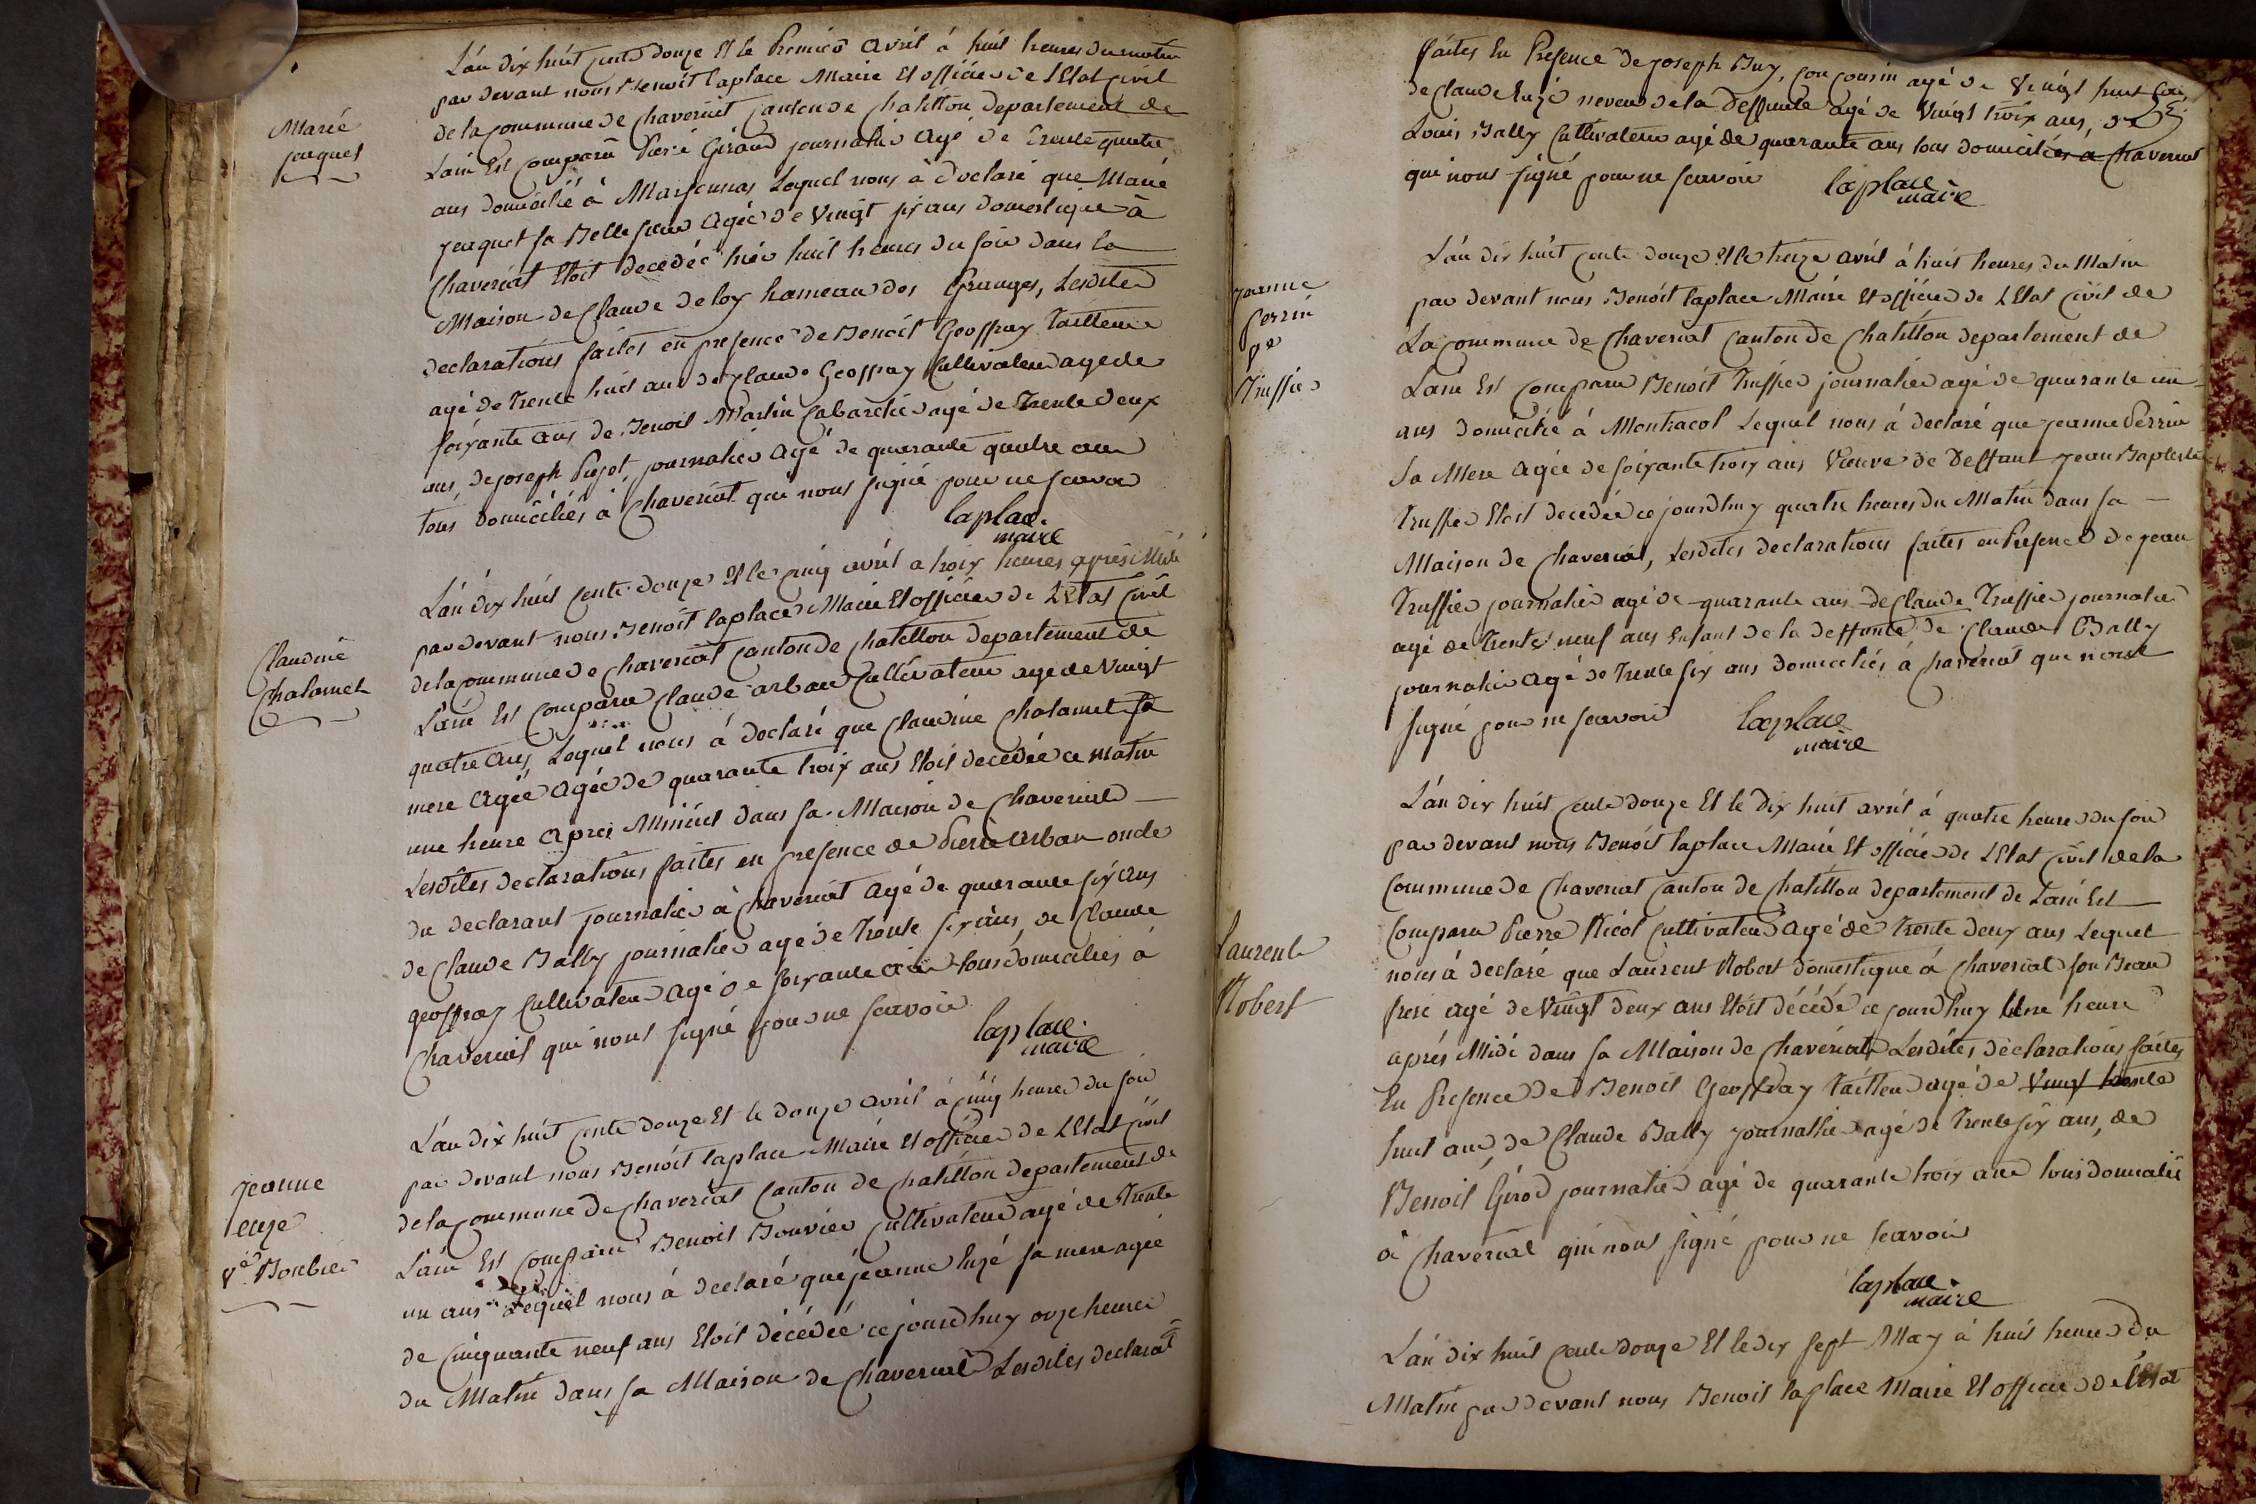 Marie
jacquet
L'an dix huit cents douze Et le Premier avril à huit heures du matin
par devant nous Benoit laplace Maire Et officier de L'Etat Civil
de la Commune de Chaveriat Canton de Chatillon departement de
Lain Est Comparu Piere Giraud journalier agé de Trente quatre
ans domicilié à Marsonnas Lequel nous à declaré que Marie
jacquet sa Belle soeur Agée de Vingt six ans domestique à
Chaveriat Etoit decedée hier huit heures du soir dans la
Maison de Claude deloy hameau des Granges, Lesdites
declarations faites en presence de Benoit Geoffray Tailleur
agé de Trente huit ans de Claude Geoffray Cultivateur age de
soixante ans de Benoit Martin Cabaretier agé de Trente deux
ans, de joseph Pujet, journalier agé de quarante quatre ans
tous domiciliés à Chaveriat que nous signé pour ne scavoir
laplace.
maire
Claudine
Chalamet
L'an dix huit cents douze Et le cinq avril a troix heures après Midi
par devant nous Benoit laplace Maire Et officier de L'Etat Civil
de la Commune de Chaveriat Canton de Chatillon departement de
Lain Est Comparu Claude arban Cultivateur age de Vingt
quatre ans, Lequel nous à declaré que Claudine Chalamet sa
mere Agée Agée de quarante troix ans Etoit decedée ce matin
une heure après Minuit dans sa Maison de Chaveriat
Lesdites declarations faites en presence de Pierre arban oncle
du declarant journalier à Chaveriat agé de quarante six ans
de Claude Bally journalier agé de Trente six ans, de Claude
geoffray Cultivateur agé de soixante ans tous domiciliés à
Chaveriat qui nous signé pour ne scavoir
laplace.
maire
Jeanne
euze
Ve Bouvier
L'an dix huit cents douze Et le douze avril à cinq heures du soir
par devant nous Benoit laplace Maire Et officier de L'Etat Civil
de la Commune de Chaveriat Canton de Chatillon departement de
Lain Est Comparu Benoit Bouvier Cultivateur agé de Trente
un ans Lequel nous à declaré que jeanne Euzé sa mere agée
de Cinquante neuf ans Etoit décédée ce jourd'huy onze heures
du Matin dans sa Maison de Chaveriat Lesdites declarat
faites En Presence de joseph Buy, son cousin agé de Vingt huit
de Claude Euzé neveu de la deffunte agé de Vingt troix ans, de
Louis Bally Cultivateur agé de quarante ans tous domiciliés a Chaveriat
qui nous signé pour ne scavoir
laplace
maire
jeanne
perrin
Ve
Truffier
L'an dix huit cents douze Et le treize avril à huit heures du Matin
par devant nous Benoit laplace Maire Et officier de L'Etat Civil de
La Commune de Chaveriat Canton de Chatillon departement de
Lain Est Comparu Benoit Truffier journalier agé de quarante un
ans domicilié à Montracol Lequel nous à declaré que jeanne Perrin
sa Mere agée de soixante troix ans Veuve de Deffunt jean Baptiste
Truffier Etoit decedée ce jourd'huy quatre heures du Matin dans sa
Maison de Chaveriat, Lesdites declarations faites en Presence de jean
Truffier journalier agé de quarante ans de Claude Truffier journalier
agé de Trente neuf ans Enfant de la deffunte de Claude Bally
journalier agé de Trente six ans domiciliés à Chaveriat qui nous
signé pour ne scavoir
laplace
maire
Laurent
Robert
L'an dix huit cents douze Et le dix huit avril à quatre heures du soir
par devant nous Benoit laplace Maire Et officier de L'Etat Civil de la
Commune de Chaveriat Canton de Chatillon departement de Lain Est
Comparu Pierre Nicol Cultivateur agé de Trente deux ans Lequel
nous à declaré que Laurent Robert domestique à Chaveriat son Beau
frere agé de Vingt deux ans Etoit décédé ce jourd'huy Une heure
après Midi dans sa Maison de Chaveriat Lesdites declarations faites
En Presence de Benoit Geoffray Tailleur agé de Vingt trente
huit ans de Claude Bally journalier agé de Trente six ans, de
Benoit Girod journalier agé de quarante troix ans tous domiciliés
à Chaveriat qui nous signé pour ne scavoir
laplace.
maire
L'an dix huit cents douze Et le dix sept May à huit heures du
Matin par devant nous Benoit laplace Maire Et officier de L'Etat